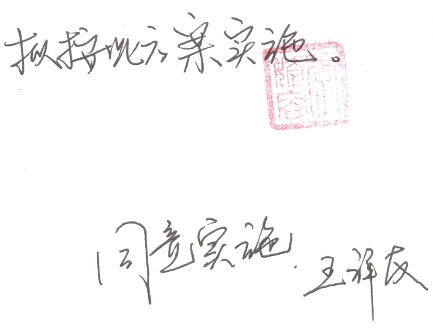 拟按此方案实施。
同意实施.
王祥友